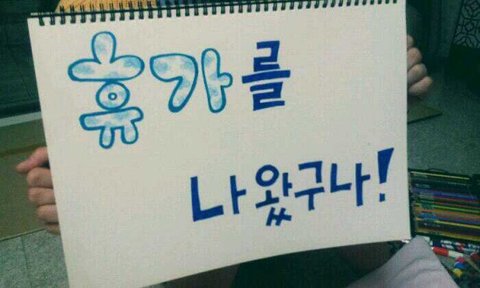 휴가를
나왔구나!